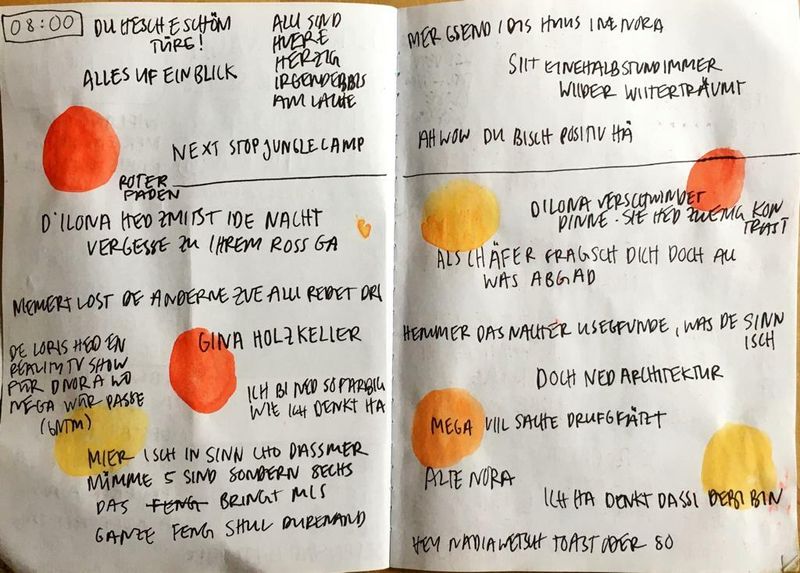 08:00
DU HESCH E SCHÖM
TÜRE!
ALLES UF EIN BLICK
ALLI SIND
HUERE
HERZIG
IRGENDEBIS
AM LACHE
NEXT STOP JUNGLE CAMP
ROTER
FADEN
D'ILONA HED ZMITST IDE NACHT
VERGESSE ZU IHREM ROSS GA
MEIMERT LOST DE ANDERNE ZUE ALLI REDET DRI
GINA HOLZKELLER
DE LORIS HED EN
REALITY TV SHOW
FÜR D NORA WO
MEGA WÜR PASSE
(GNTM)
ICH BI NED SO FARBIG
WIE ICH DENKT HA
MIER ISCH IN SINN CHO DASS MER
NÜMME 5 SIND SONDERN SECHS
DAS FENG BRINGT MIS
GANZE FENG SHUI DURENAND
MER GSEND IDIS HUUS INE NORA
SIIT EINEHALB STUND IMMER
WIIDER WIITERTRÄUMT
AH WOW DU BISCH POSITIV HÄ
D ILONA VERSCHWINDET
DINNE. SIE HED ZWENIG KON
TRAST
ALS CHÄFER FRAGSCH DICH DOCH AU
WAS ABGAD
HEMMER DAS NACHTER USEGFUNDE, WAS DE SINN
ISCH
DOCH NED ARCHITEKTUR
MEGA VIIL SACHE DRUFGFÄTZT
ALTE NORA
ICH HA DENKT DASS I DEBI BIN
HEY NADIA WETSCH TOAST ODER SO